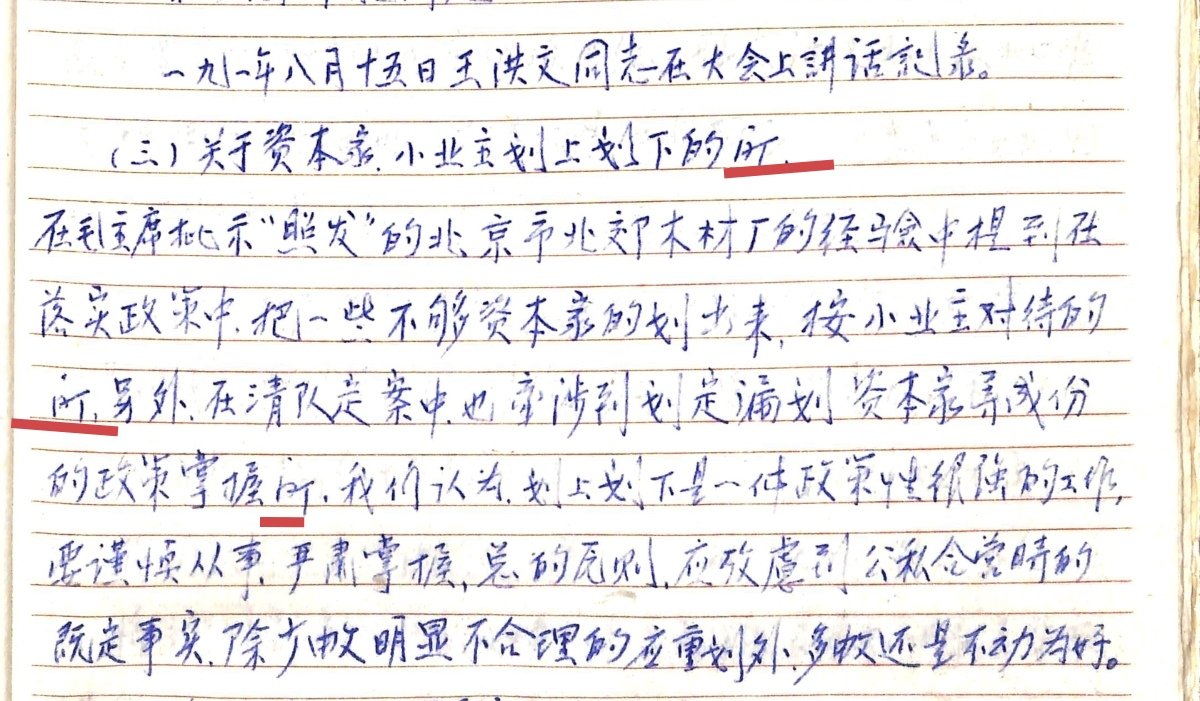 一九七一年八月十五日王洪文同志在大会上讲话记录。
(三)关于资本家、小业主划上划下的
在毛主席批示“照发”的北京市北郊木材厂的经验中提到在
落实政策中,把一些不够资本家的划出来,按小业主对待的
另外,在清队定案中,也牵涉到划定漏划资本家等成份
的政策掌握 我们认为,划上划下是一件政策性很强的工作,
要谨慎从事,严肃掌握,总的原则,应攷慮到公私合营時的
既定事实,除少数明显不合理的应重划外,多数还是不动为好。